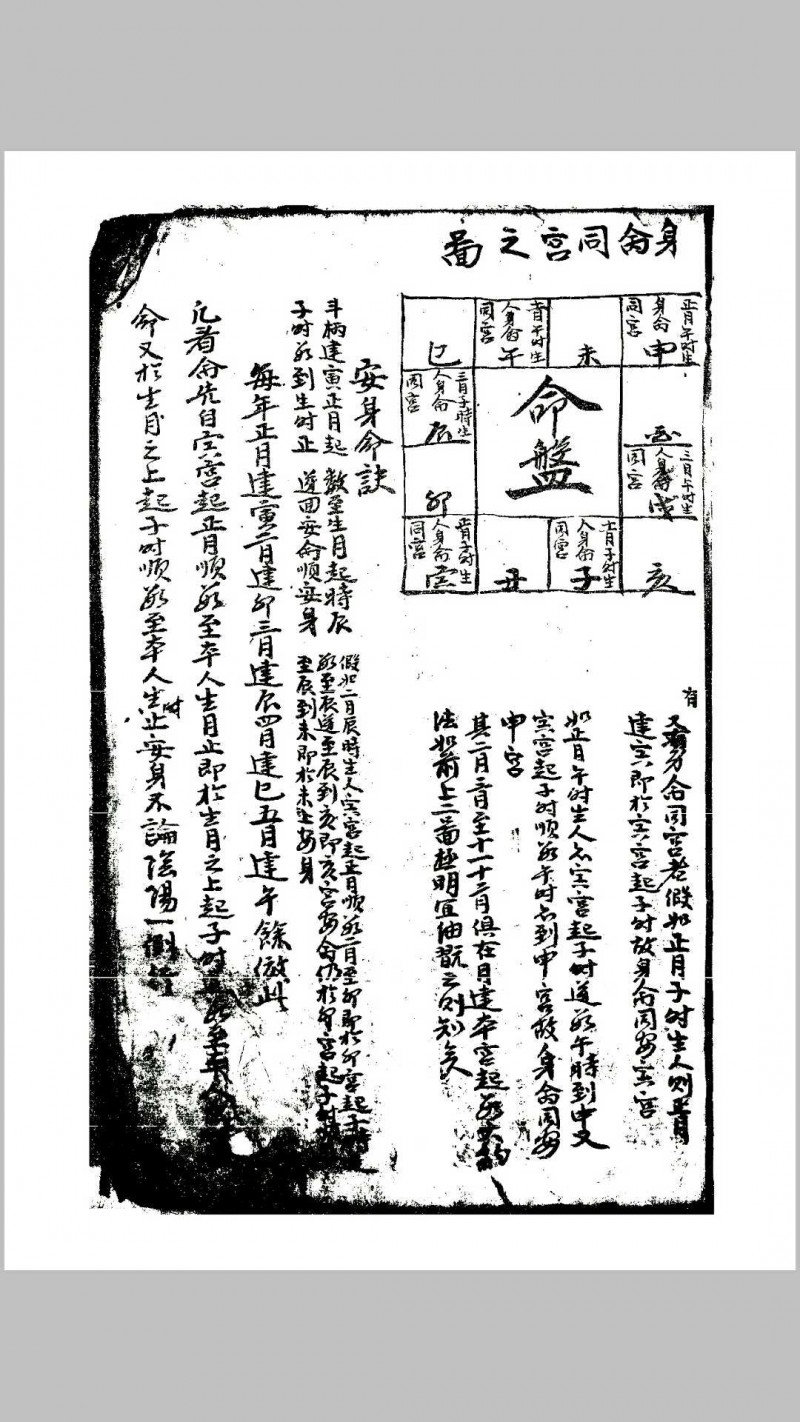 身命同宮之圖
正月午時生
身命
同宮
申
未
五月午時生
人身命
同宮
午
巳
三月子時生
人身命
同宮
辰
卯
正月子時生
人身命
同宮
寅
丑
十一月子時生
人身命
同宮
子
亥
三月午時生
人身命
同宮
戌
酉
命盤
又有身命同宮者假如正月子時生人則正月
有
建寅即於寅宮起子時故身命同安寅宮
如正月午時生人亦寅宮起子時逆數午時到申又
寅宮起子時順數午時亦到申宮故身命同安
申宮
其二月三月至十一十二月俱在月建本宮起數
法如前上二圖極明宜細玩之則知矣
安身命訣
斗柄建寅正月起 數至生月起時辰
子時數到生時止 逆回安命順安身
假如二月辰時生人寅宮起正月順數二月至卯即於卯宮起子時
數至辰逆至辰到亥即亥宮安命仍於卯宮起子時
至辰到未即於未上安身
每年正月建寅二月建卯三月建辰四月建巳五月建午餘倣此
凡看命先自寅宮起正月順數至本人生月止即於生月之上起子時
命又於生月之上起子時順數至本人生時止安身不論陰陽一例